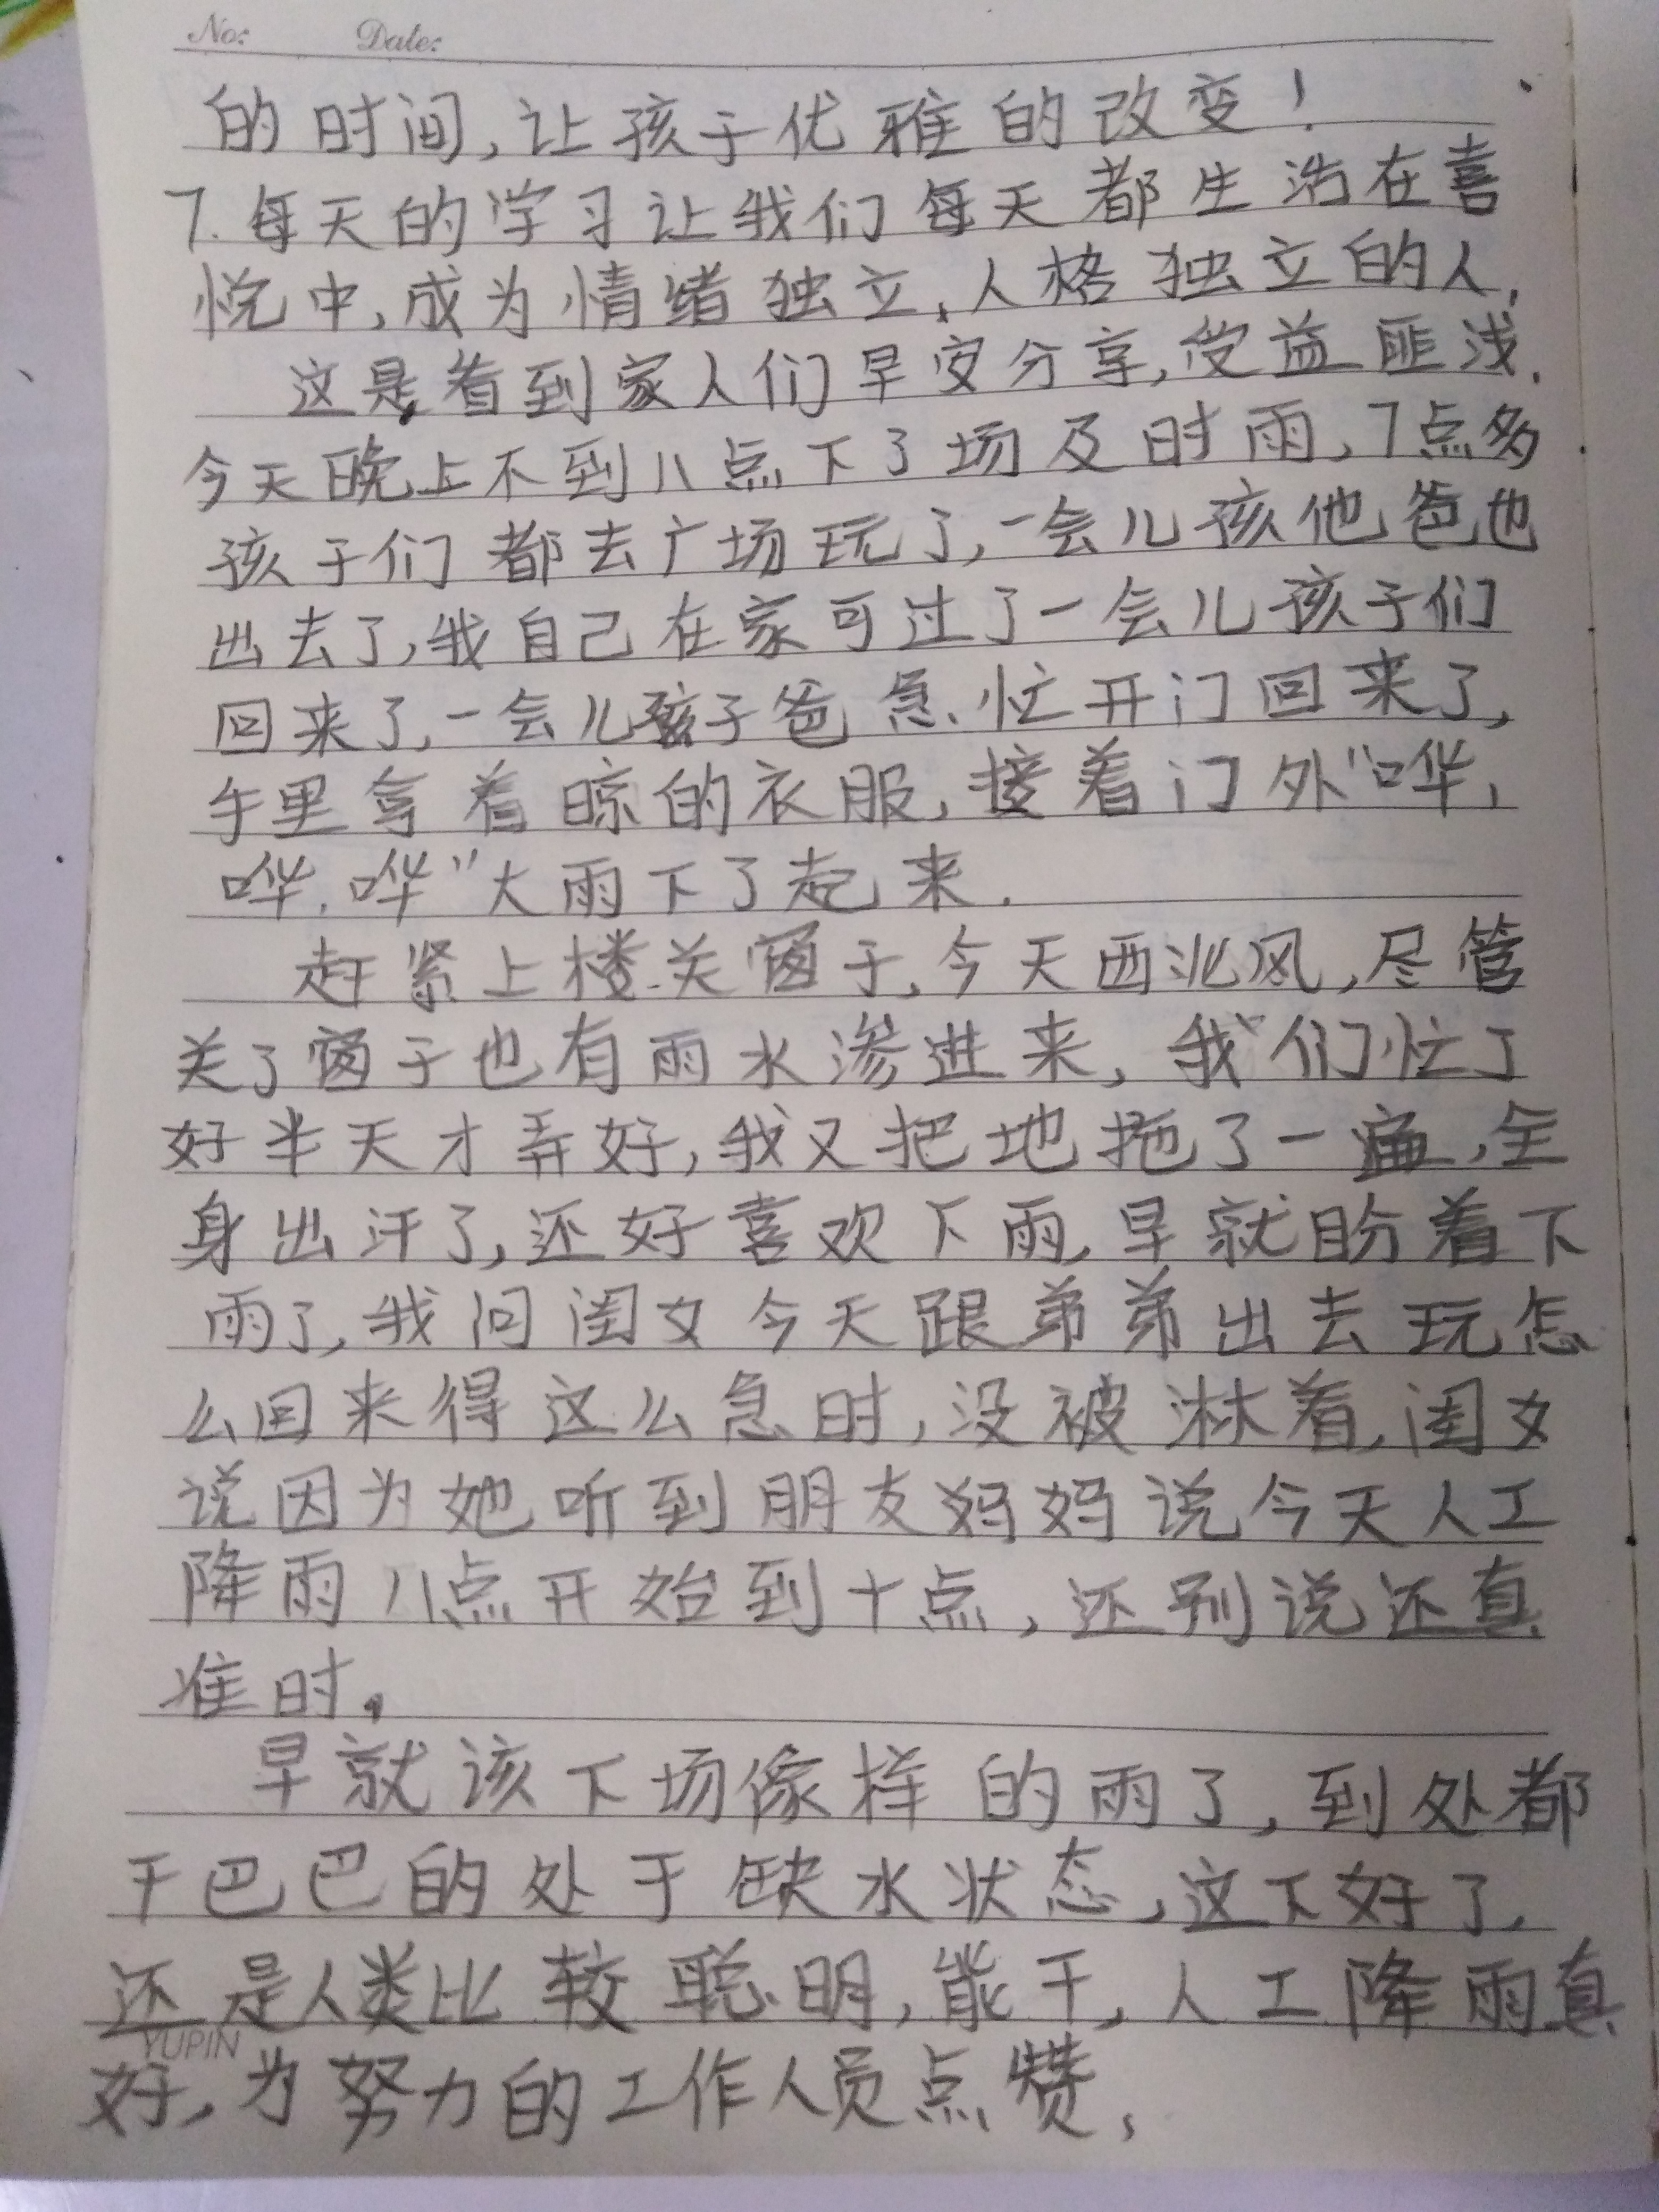 No: Date:
的时间,让孩子优雅的改变!
7.每天的学习让我们每天都生活在喜
悦中,成为情绪独立、人格独立的人.
这是看到家人们早安分享,受益匪浅.
今天晚上不到八点下了场及时雨,7点多
孩子们都去广场玩了,一会儿孩他爸也
出去了,我自己在家可过了一会儿孩子们
回来了,一会儿孩子爸急忙开门回来了,
手里拿着晾的衣服,接着门外"哗,
哗.哗"大雨下了起来.
赶紧上楼关窗子,今天西北风,尽管
关了窗子也有雨水渗进来,我们忙了
好半天才弄好,我又把地拖了一遍,全
身出汗了,还好喜欢下雨,早就盼着下
雨了,我问闺女今天跟弟弟出去玩怎
么回来得这么急时,没被淋着,闺女
说因为她听到朋友妈妈说今天人工
降雨八点开始到十点,还别说还真
准时。
早就该下场像样的雨了,到处都
干巴巴的处于缺水状态,这下好了,
还是人类比较聪明,能干,人工降雨真
YUPIN
好,为努力的工作人员点赞,